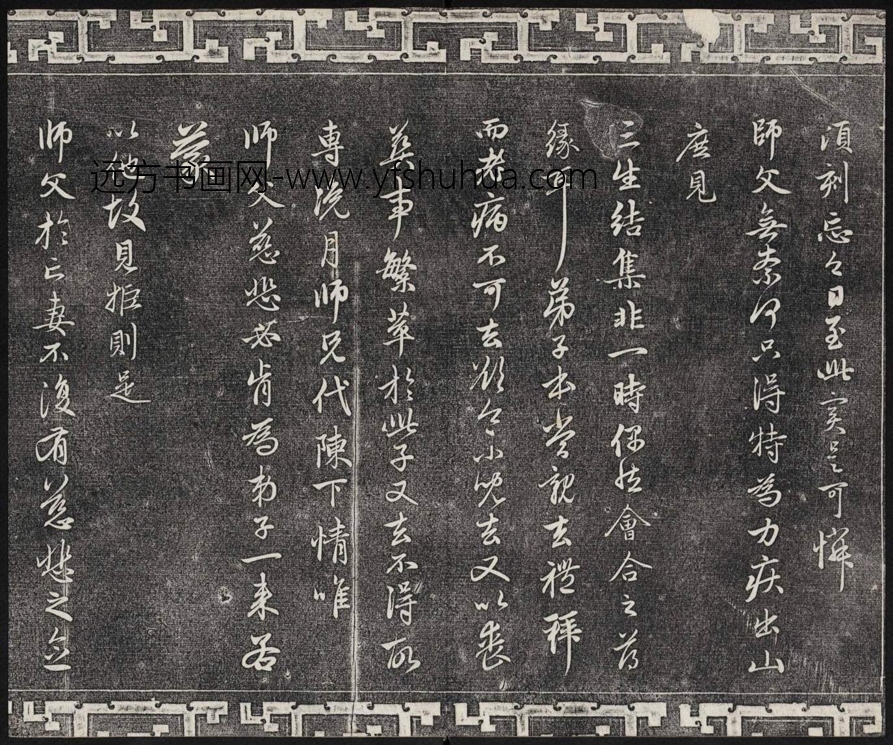 須刻忘之日至此實是可憐
師父無奈何只得特為力疾出山
庶見
三生結集非一時偶然會合之薄
緣耳弟子本當親去禮拜
而老病不可去欲令小兒去又以喪
葬事繁萃於此子又去不得取
專浼月師兄代陳下情唯
師父慈悲必肯為弟子一来若
蒙
以他故見拒則是
師父於亡妻不復有慈悲之念
远方书画网-www.yfshuhua.com